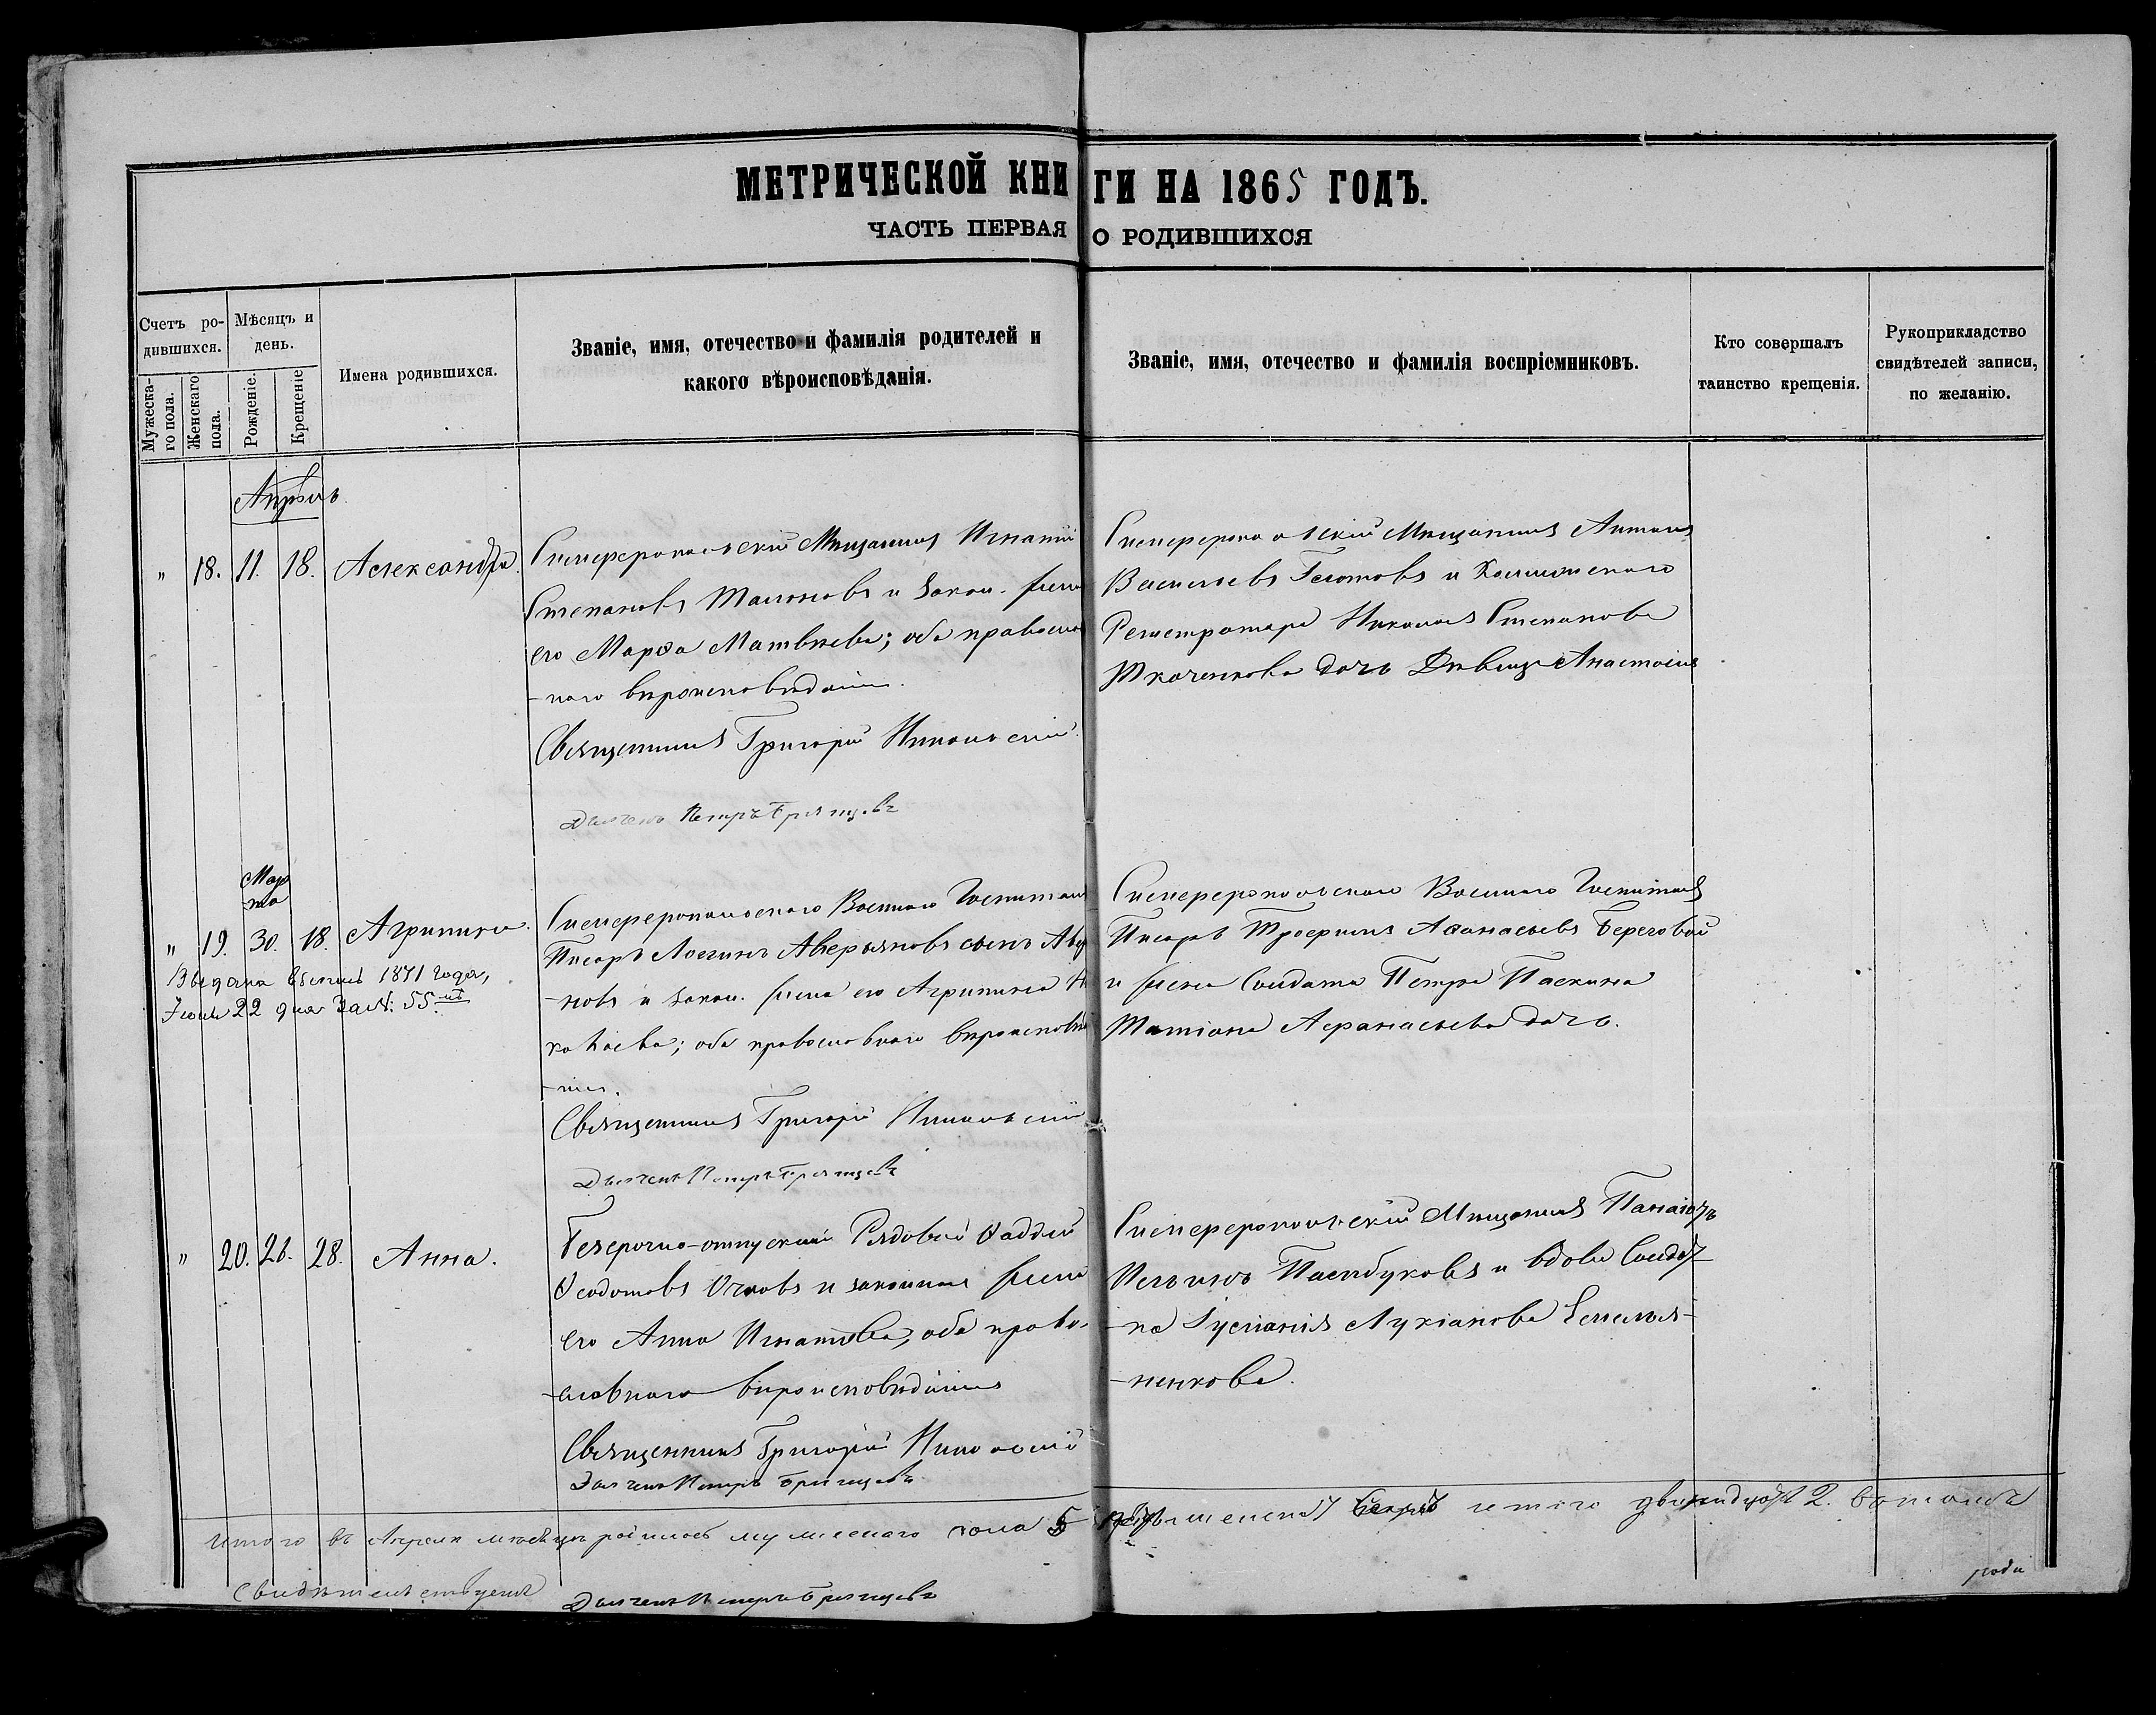 МЕТРИЧЕСКОЙ КНИГИ НА 1865 ГОДЪ.
ЧАСТЬ ПЕРВАЯ О РОДИВШИХСЯ
Счетъ ро-
дившихся.
Мужеска-
го пола.
Женскаго
пола.
Мѣсяцъ и
день.
Рожденіе.
Крещеніе
Имена родившихся.
Званіе, имя, отечество и фамилія родителей и
какого вѣроисповѣданія.
Званіе, имя, отечество и фамилія воспріемниковъ.
Кто совершалъ
таинство крещенія.
Рукоприкладство
свидѣтелей записи,
по желанію.
Апрѣль
" 18. 11. 18. Александра.
Симферопольскій Мѣщанинъ Игнатій
Степановъ и закон. жена
его Марѳа Матвѣева; оба православ
-наго вѣроисповѣданія.
Священникъ Григорій Никольскій
Дьяченъ Петръ Брянцевъ
Симферопольскій Мѣщанинъ Антонъ
Васильевъ и Коллежскаго
Регистратора Николая Степанова
Ткаченкова дочь Дѣвица Анастасія
Мар
та
" 19. 30. 18. Агрипина.
Выдана 1871 года,
Іюня 22 дня за №: 55.мъ
Симферопольскаго Военнаго Госпиталя
Писарь Логинъ Аверьяновъ сынъ
-новъ и закон. жена его Агрипина
; оба православнаго вѣроисповѣда
-нія.
Священникъ Григорій Никольскій
Дьяченъ Петръ Брянцевъ
Симферопольскаго Военнаго Госпиталя
Писарь Трофимъ Аѳанасьевъ Береговой
и жена Солдата Петра Паскина
Татіана Афанасьева дочь.
" 20. 28. 28. Анна.
Безсрочно-отпускной Рядовой Ѳаддей
Ѳеодотовъ и законная жена
его Анна Игнатьева, оба право-
славнаго вѣроисповѣданія
Священникъ Григорій Никольскій
Дьяченъ Петръ Брянцевъ
Симферопольскій Мѣщанинъ Панаіотъ
и вдова Солдат-
ка Іуліанія Лукіанова Емелья-
ненкова.
Итого въ Апрѣлѣ мѣсяцѣ родилось мужескаго пола 5 женска 7 итого двенадцать 12.
Свидѣтельствуемъ
Дьяченъ Петръ Брянцевъ
роди